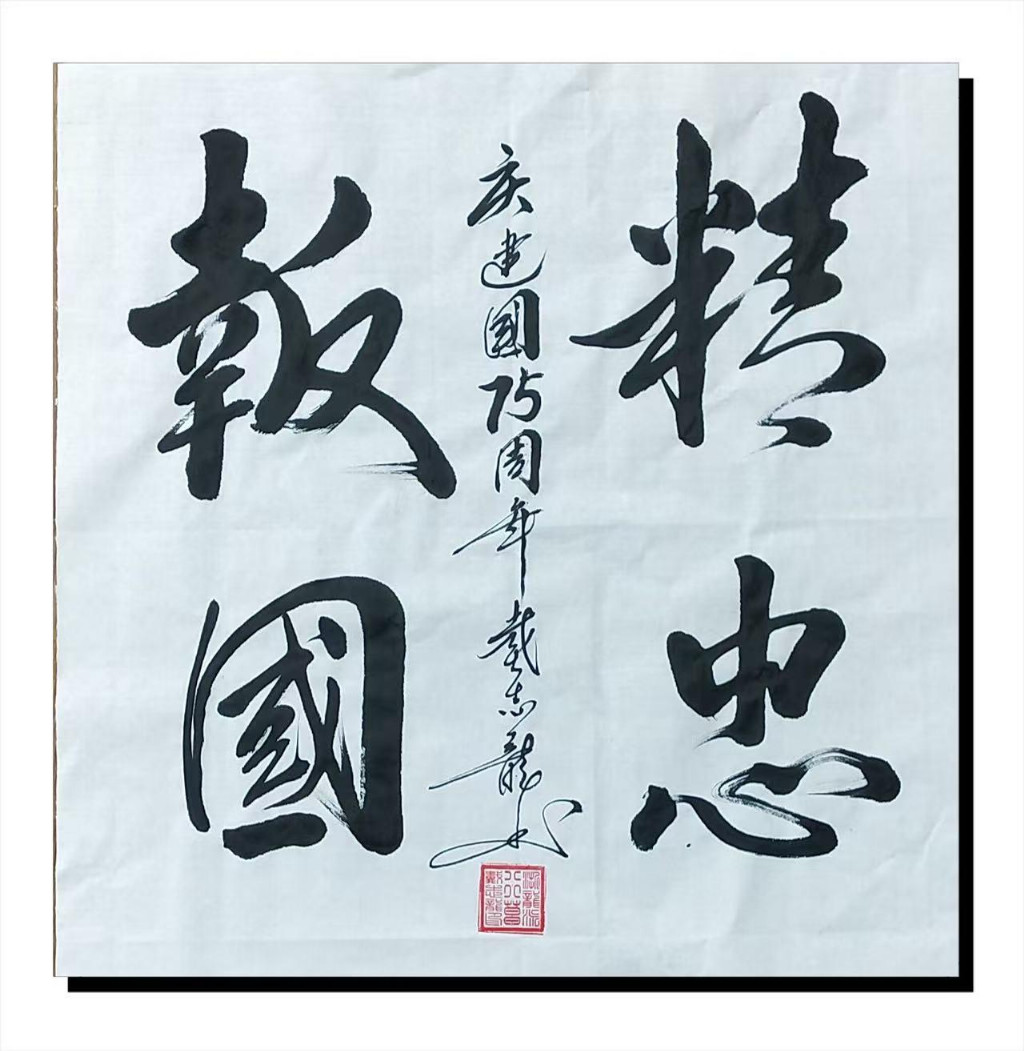 精忠
報國
庆建國75周年戴志龍书